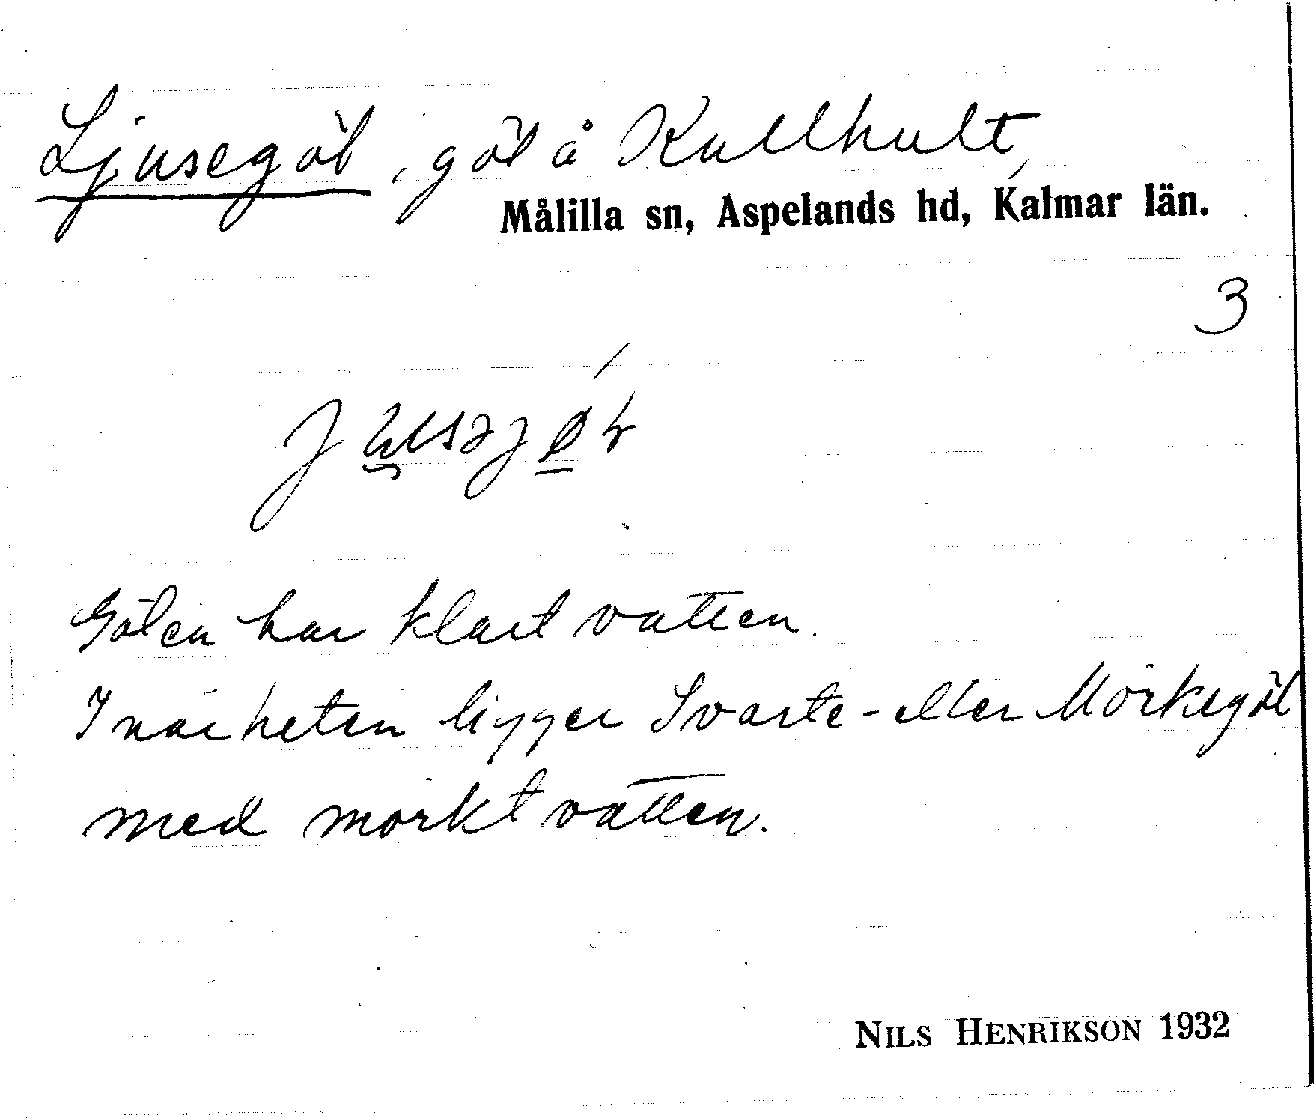 Ljusegöl, göl å Kullhult,
Målilla sn, Aspelands hd, Kalmar län.
3
Gölen har klart vatten.
I närheten ligger Svarte- eller Mörkegöl
med mörkt vatten.
NILS HENRIKSON 1932